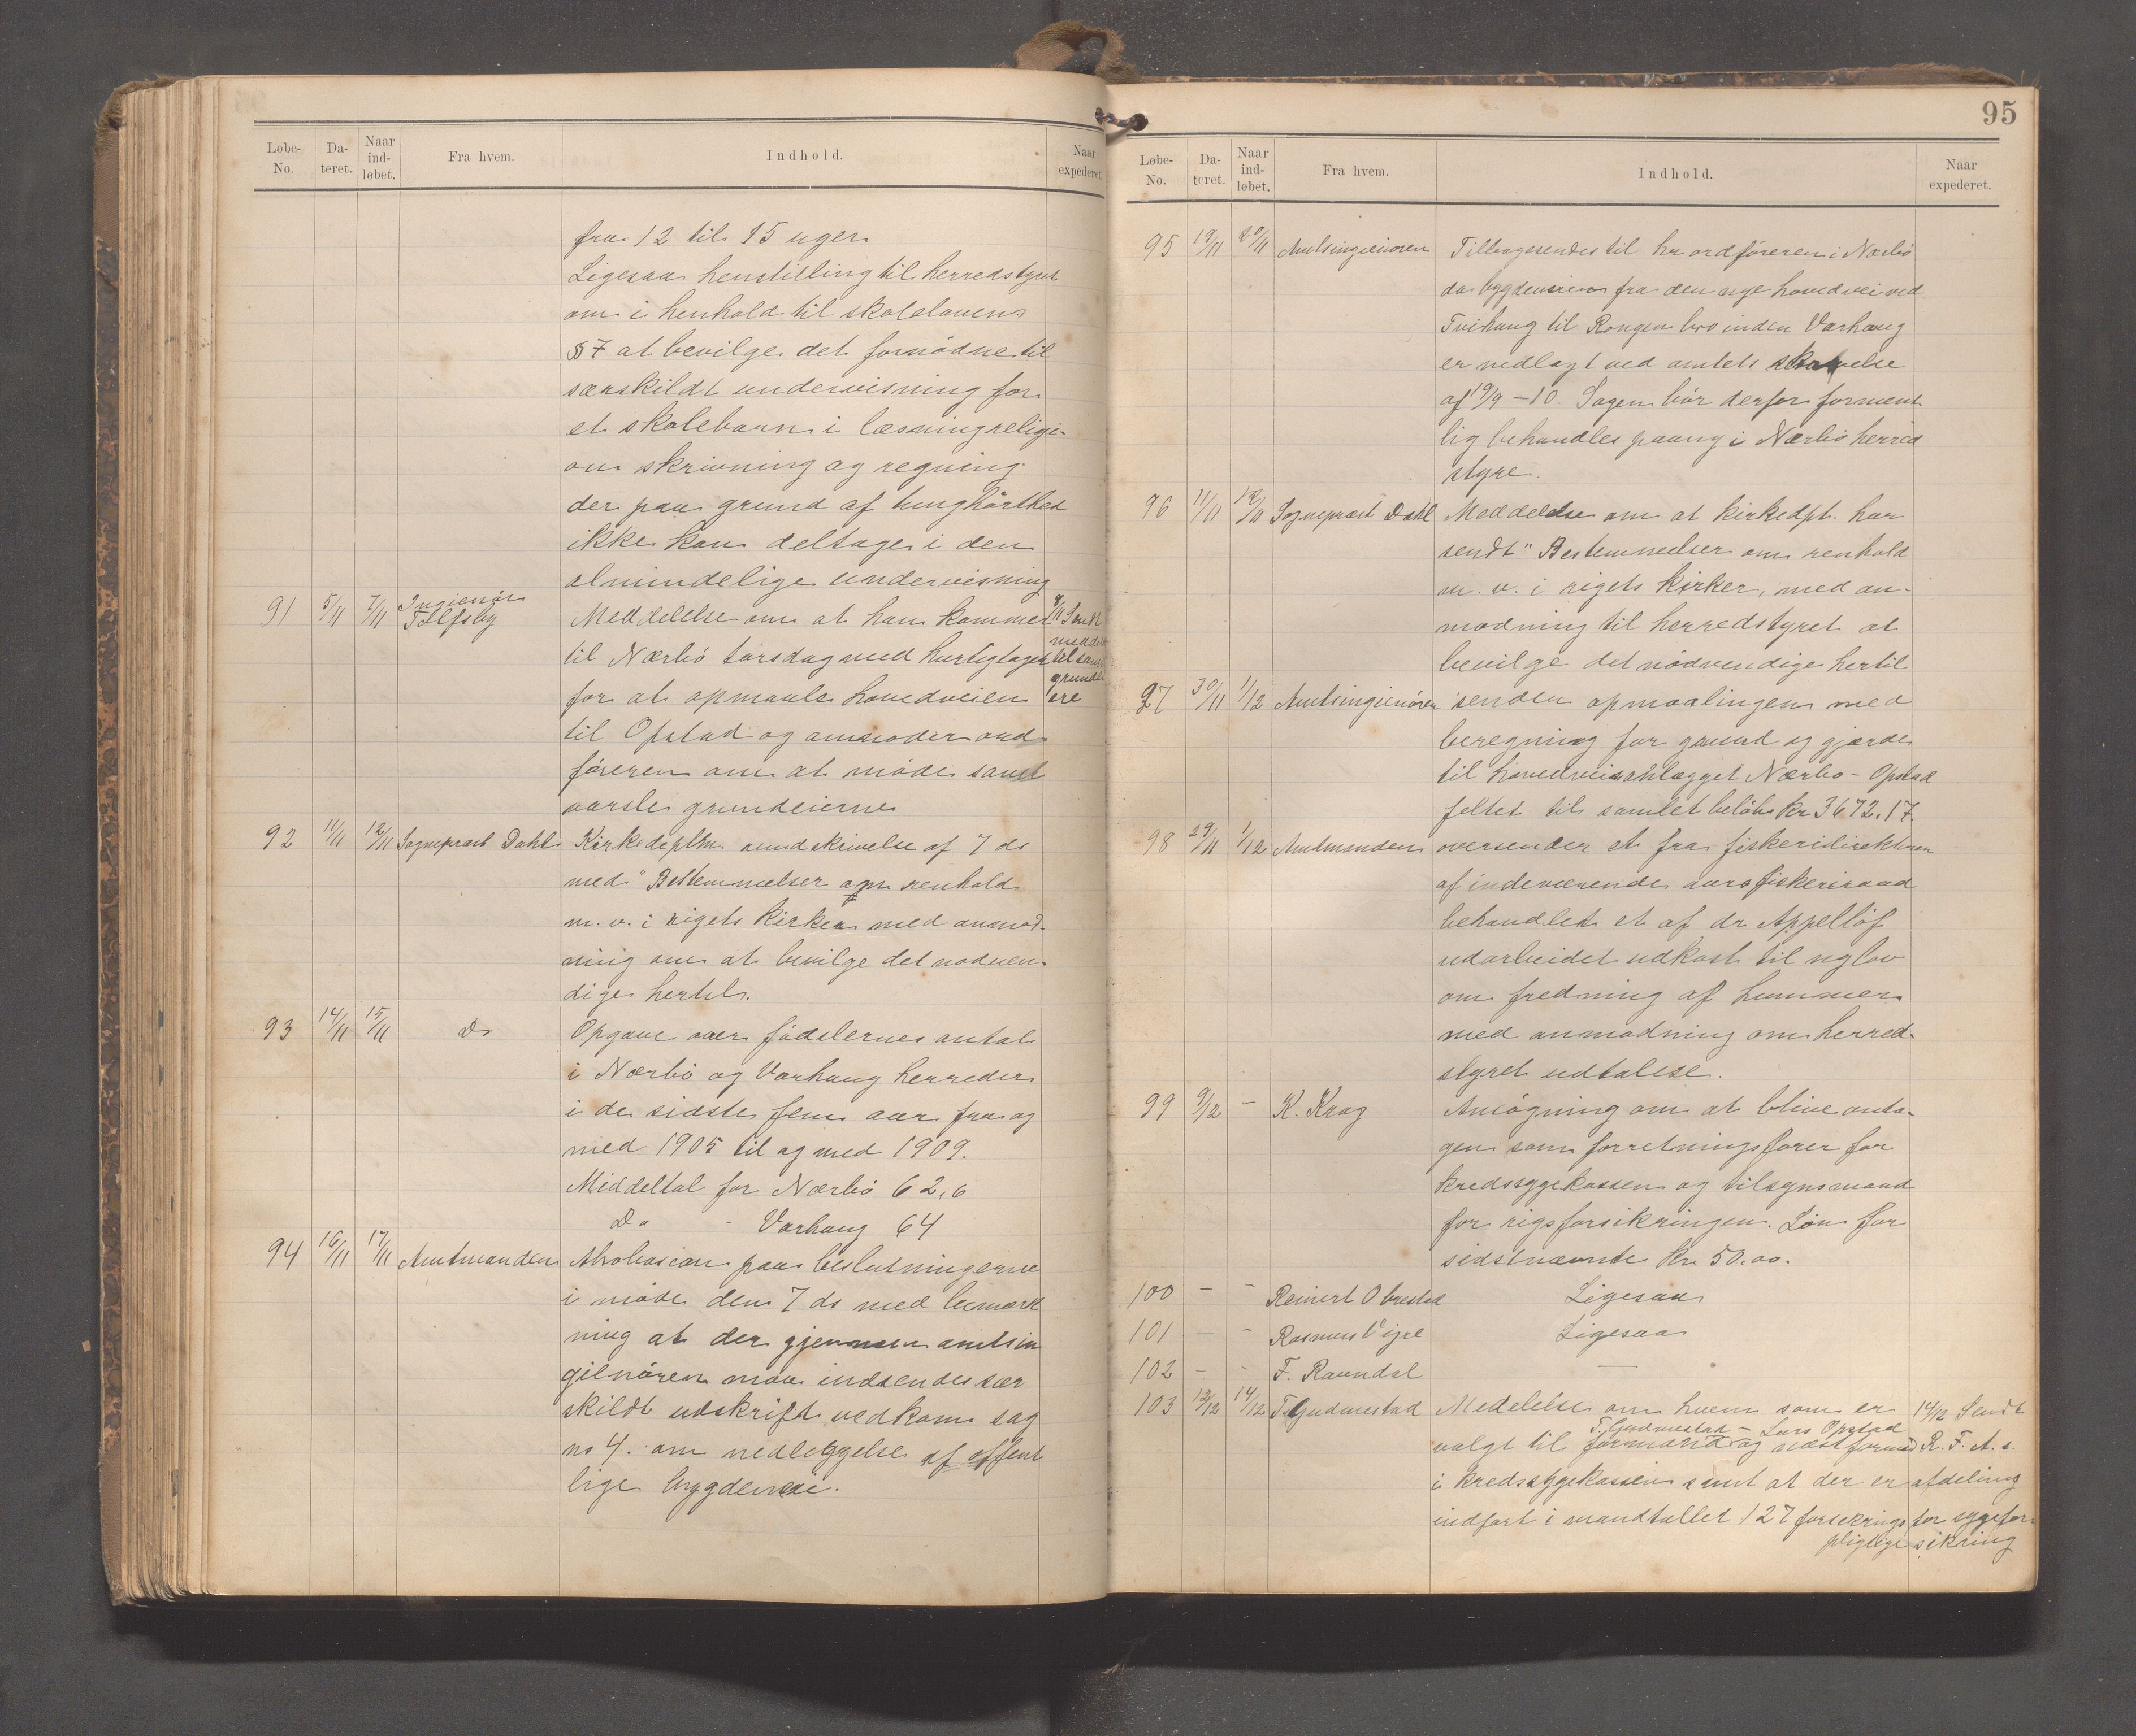 Løbe-No. Da-teret. Naar ind-løbet. Fra hvem. Indhold. Naar expederet.
fra 12 til 15 uger.
Ligesaa henstilling til herredstyret
om i henhold til skolelovens
§ 7 at bevilge det fornødne til
særskildt undervisning for
et skolebarn i læsning religi-
on skrivning og regning
der paa grund af tunghørthed
ikke kan deltage i den
almindelige undervisning
91 5/11 7/11 Ingieniør Meddelelse om at han kommer 8/11 Sendt
til Nærbø torsdag med hurtigtoget
for at opmaale hovedveien
til Opstad og anmoder ord
føreren om at møde samt
varsle grundeierne
92 11/11 12/11 Sogneprest Dahl Kirkedeptm. rundskrivelse af 7 ds
med "Bestemmelser om renhold
m. v. i rigets kirker med anmod-
ning om at bevilge det nødven-
dige hertil.
93 14/11 15/11 Do Opgave over fødslernes antal
i Nærbø og Varhaug herreder
i de sidste fem aar fra og
med 1905 til og med 1909.
Middeltal for Nærbø 62,6
Do - Varhaug 64
94 16/11 17/11 Amtmanden paa beslutningerne
i møde den 7 ds med bemærk
ning at der gjennem amtsin
geniøren maa indsendes sær
skildt udskrift vedkom sag
no 4. om nedleggelse af offent
lige bygdeveie.
95
Løbe-No. Da-teret. Naar ind-løbet. Fra hvem. Indhold. Naar expederet.
95 19/11 20/11 Amtsingieniøren Tilbagesendes til hr ordføreren i Nærbø
da bygdeveien fra den nye hovedvei ved
Tvihaug til Rongen bro inden Varhaug
er nedlagt ved amtets skrivelse
af 19/9 – 10. Sagen bør derfor forment
lig behandles paany i Nærbø herred
styre.
96 11/11 12/11 Sogneprest Dahl Meddelelse om at kirkedpt. har
sendt "Bestemmelser om renhold
m. v. i rigets kirker, med an-
modning til herredstyret at
bevilge det nødvendige hertil
97 30/11 1/12 Amtsingieniøren sender opmaalingen med
beregning for grund og gjærde
til hovedveianlægget Nærbø – Opstad
feltet til samlet beløb kr 3672.17.
98 29/11 1/12 Amtmanden oversender et fra fiskeridirektøren
af indeværende aars fiskeriraad
behandlet et af dr Appelløf
udarbeidet udkast til ny lov
om fredning af hummer
med anmodning om herred-
styret udtalese.
99 9/12 – K. Krag Ansøgning om at blive anta-
gen som forretningsfører for
kredssygekassen og tilsynsmand
for rigsforsikringen. Løn for
sidstnævnte kr 50.00.
100 – – Reinert Obrestad Ligesaa
101 – – Rasmus Vigre Ligesaa
102 – – F. Ravndal —
103 12/12 14/12 T Gudmestad Medelelse om hvem som er 14/12 Sendt
T. Gudmestad – Lars Opstad
valgt til formand og næstformand R. F. A. s.
i kredssygekassen samt at der er afdeling
indført i mandtallet 127 forsekrings for sygefor-
pligtige sikring